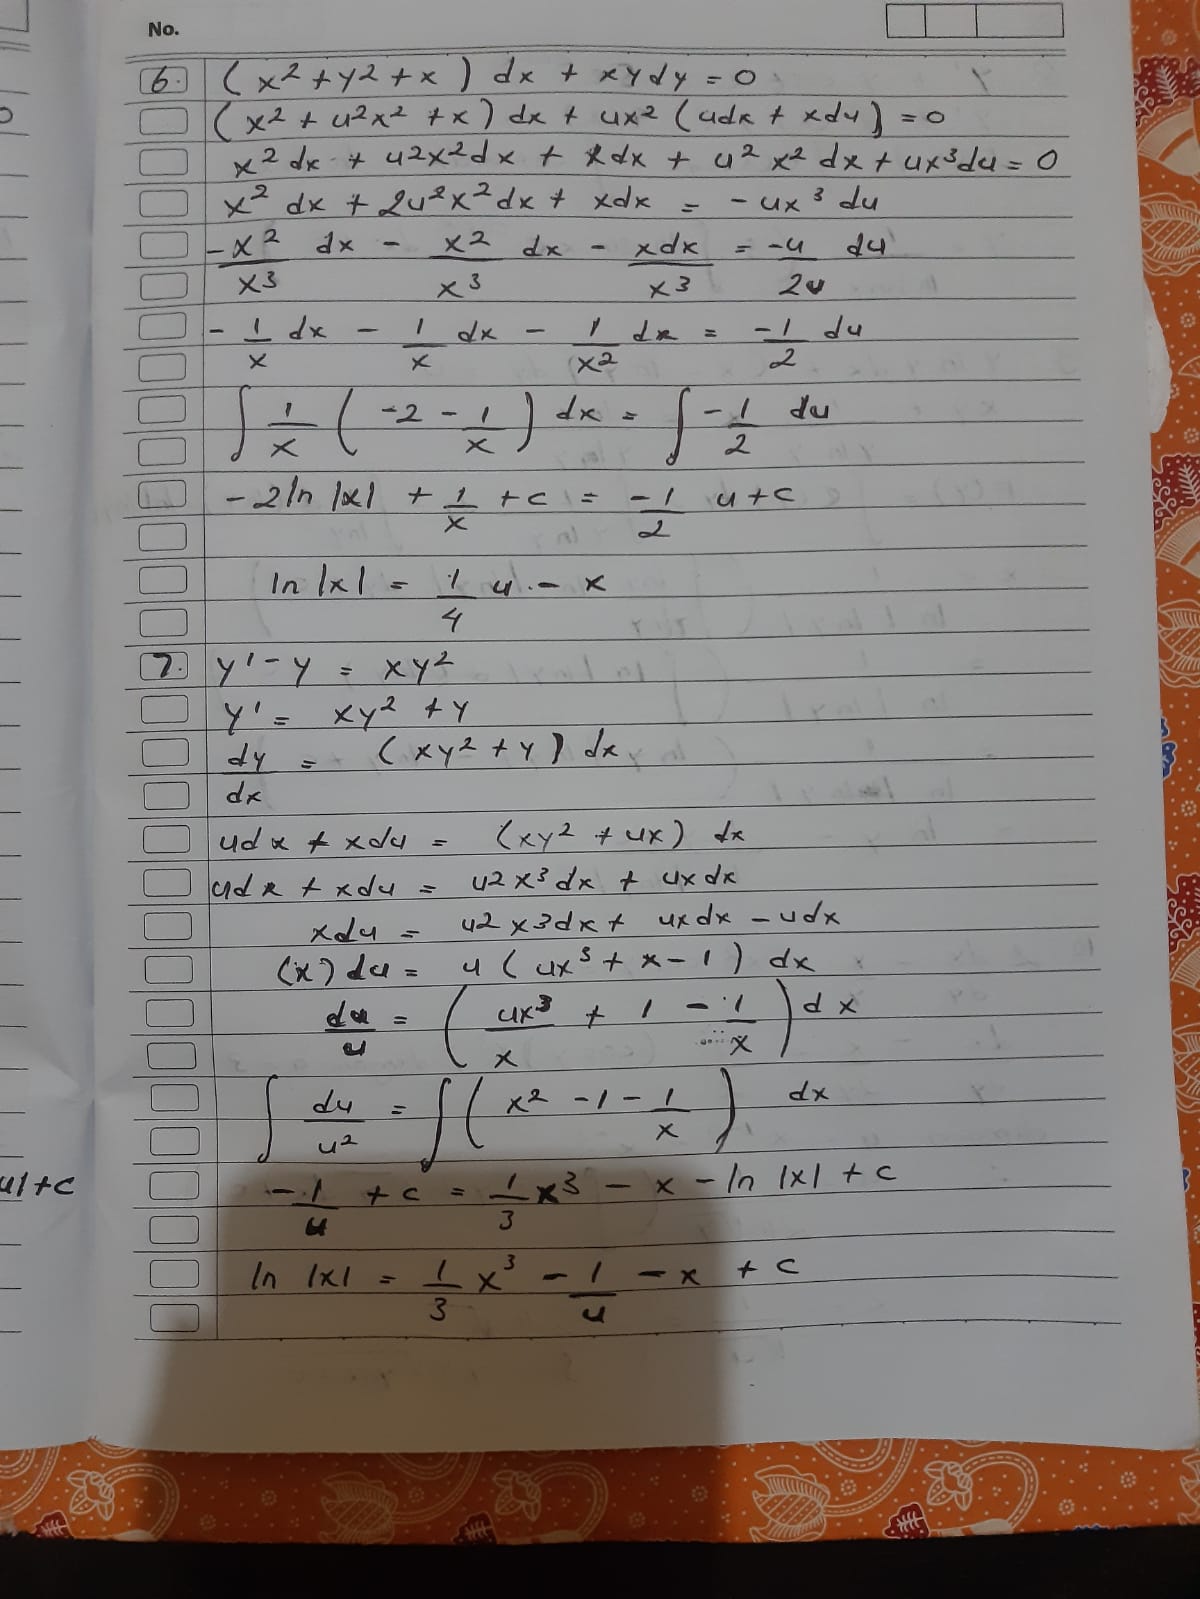 No.
6. (x² + y² + x) dx + xydy = 0
(x² + u²x² + x) dx + ux² (udx + xdu) = 0
x² dx + u²x²dx + xdx + u² x² dx + ux³du = 0
x² dx + 2u²x²dx + xdx = - ux³ du
-x²/x³ dx - x²/x³ dx - xdx/x³ = -u/2u du
- 1/x dx - 1/x dx - 1/x² dx = -1/2 du
∫ 1/x (-2 - 1/x) dx = ∫ -1/2 du
-2 ln |x| + 1/x + c = -1/2 u + c
ln |x| = 1/4 u - x
7. y' - y = xy²
y' = xy² + y
dy/dx = (xy² + y) dx
udx + xdu = (xy² + ux) dx
udx + xdu = u²x³dx + uxdx
xdu = u²x³dx + uxdx - udx
(x) du = u (ux³ + x - 1) dx
du/u = (ux³/x + 1 - 1/x) dx
∫ du/u² = ∫ (x² - 1 - 1/x) dx
-1/u + c = 1/3 x³ - x - ln |x| + c
ln |x| = 1/3 x³ - 1/u - x + c
u| + c